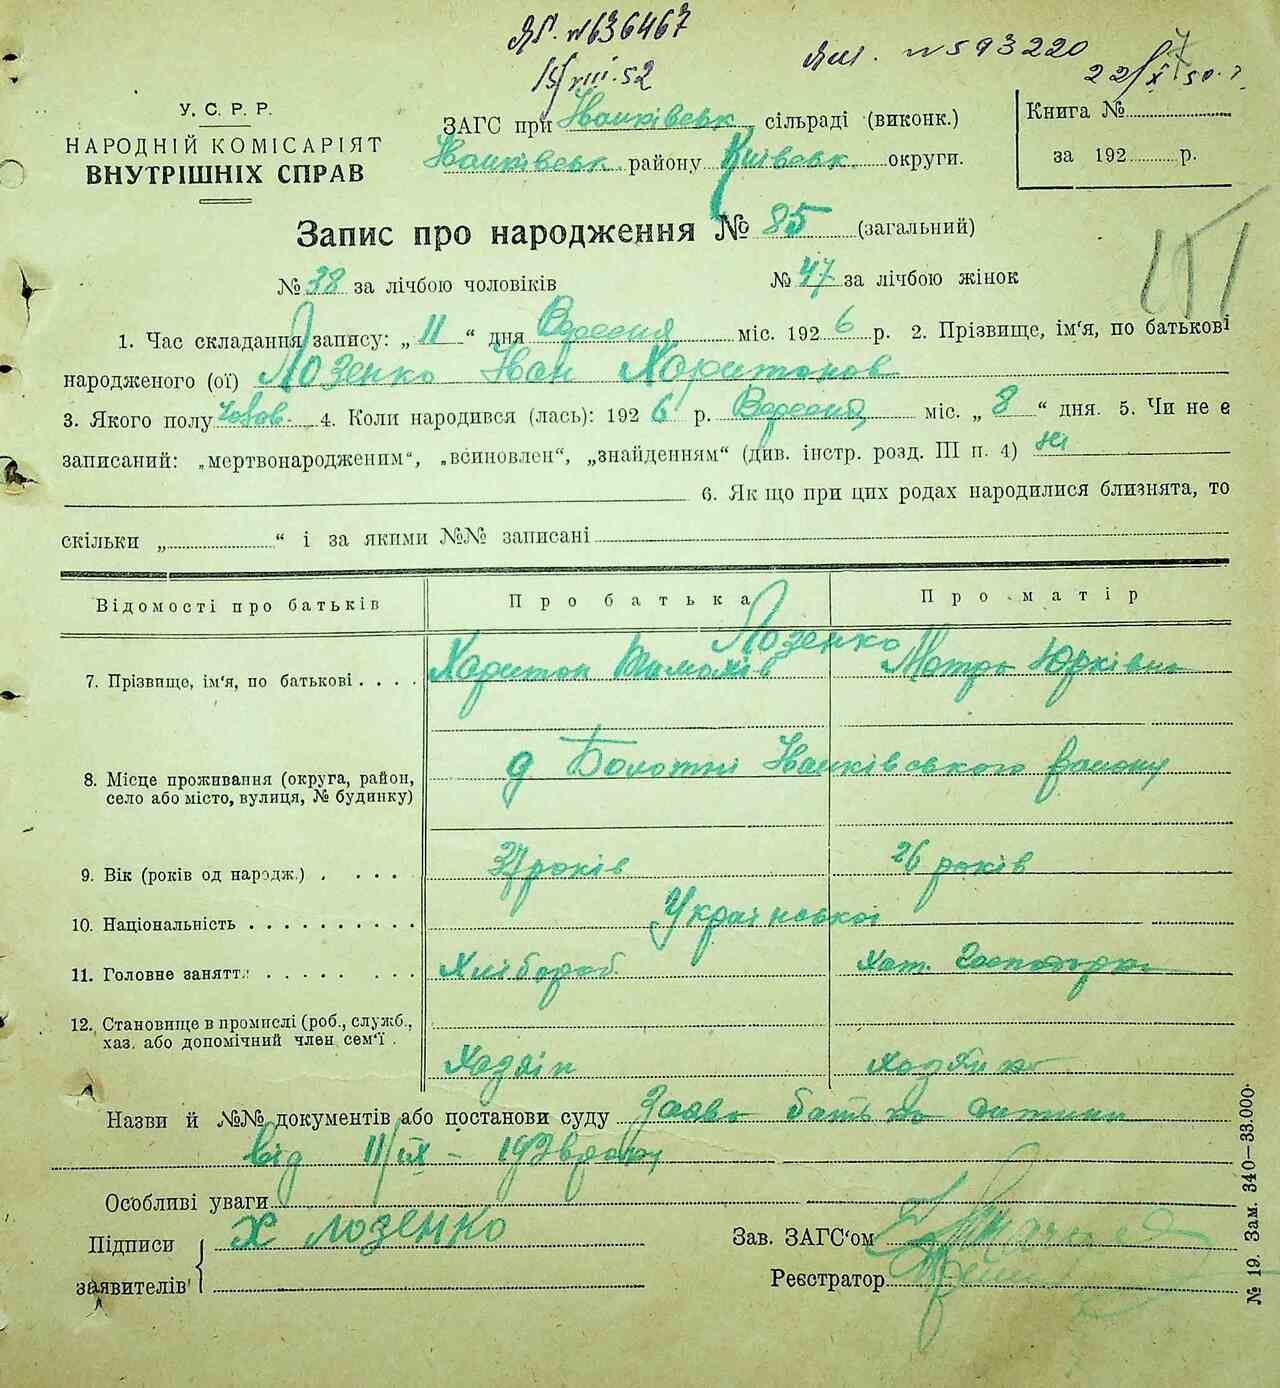 ЯР. №636467
15/VIII.52
ЯШ. №593220
22/X 50.
У.С.Р.Р.
НАРОДНІЙ КОМІСАРІЯТ
ВНУТРІШНІХ СПРАВ
ЗАГС при Іванківськ сільраді (виконк.)
Іванківськ району Київськ округи.
Книга №
за 192 р.
Запис про народження № 85 (загальний)
№ 38 за лічбою чоловіків № 47 за лічбою жінок
1. Час складання запису: „ 11 “ дня Вересня міс. 192 6 р. 2. Прізвище, ім'я, по батькові
народженого (ої) Лозенко Іван Харитонов
3. Якого полу чолов. 4. Коли народився (лась): 192 6 р. Вересня міс. „ 8 “ дня. 5. Чи не є
записаний: „мертвонародженим“, „всиновлен“, „знайденням“ (див. інстр. розд. III п. 4) ні
6. Як що при цих родах народилися близнята, то
скільки „ “ і за якими №№ записані
Відомості про батьків Про батька Про матір
Лозенко
7. Прізвище, ім'я, по батькові . . . . Харитон Тимохів Мотря Юрківна
8. Місце проживання (округа, район, д Болотня Іванківського району
село або місто, вулиця, № будинку)
9. Вік (років од народж.) . . . . 37 років 26 років
10. Національність . . . . . . . . . . Української
11. Головне занятт. . . . . . . . . Хлібороб Хат. Господарка
12. Становище в промислі (роб., служб.,
хаз. або допомічний член сем'ї .
Хазяїн хазяйка
Назви й №№ документів або постанови суду Заява батька дитини
Від 11/IX – 1926 року
Особливі уваги
Підписи Х Лозенко
заявителів
Зав. ЗАГС'ом
Реєстратор
№ 19. Зам. 340—33.000.